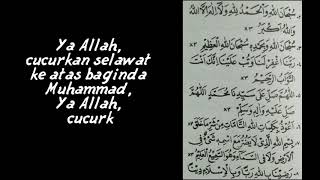 Ya Allah,
cucurkan selawat
ke atas baginda
Muhammad,
Ya Allah,
cucurk
سُبْحَانَ اللهِ وَالْحَمْدُ لِلهِ وَلَا إِلٰهَ إِلَّا اللهُ
وَاللهُ أَكْبَرُ ×٣
سُبْحَانَ اللهِ وَبِحَمْدِهِ سُبْحَانَ اللهِ الْعَظِيْمِ
×٣
رَبَّنَا اغْفِرْ لَنَا وَتُبْ عَلَيْنَا إِنَّكَ أَنْتَ
التَّوَّابُ الرَّحِيْمُ ×٣
اَللّٰهُمَّ صَلِّ عَلَى سَيِّدِنَا مُحَمَّدٍ اَللّٰهُمَّ
صَلِّ عَلَيْهِ وَسَلِّمْ ×٣
أَعُوْذُ بِكَلِمَاتِ اللهِ التَّامَّاتِ مِنْ شَرِّ مَا خَلَقَ
×٣
بِسْمِ اللهِ الَّذِيْ لَا يَضُرُّ مَعَ اسْمِهِ شَيْءٌ فِي
الْأَرْضِ وَلَا فِي السَّمَاءِ وَهُوَ السَّمِيْعُ الْعَلِيْمُ ×٣
رَضِيْنَا بِاللهِ رَبًّا وَبِالْإِسْلَامِ دِيْنًا